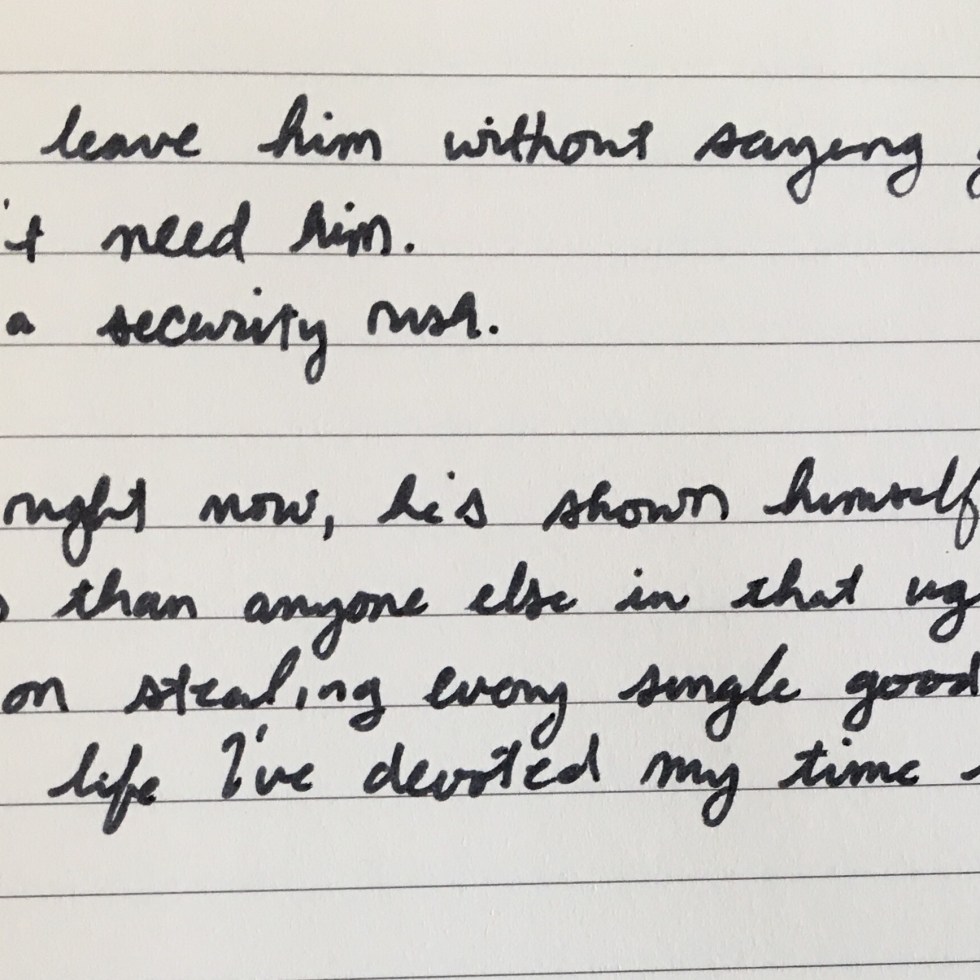 leave him without saying
't need him.
a security risk.
right now, he's shown himself
than anyone else in that ug
on stealing every single good
life I've devoted my time